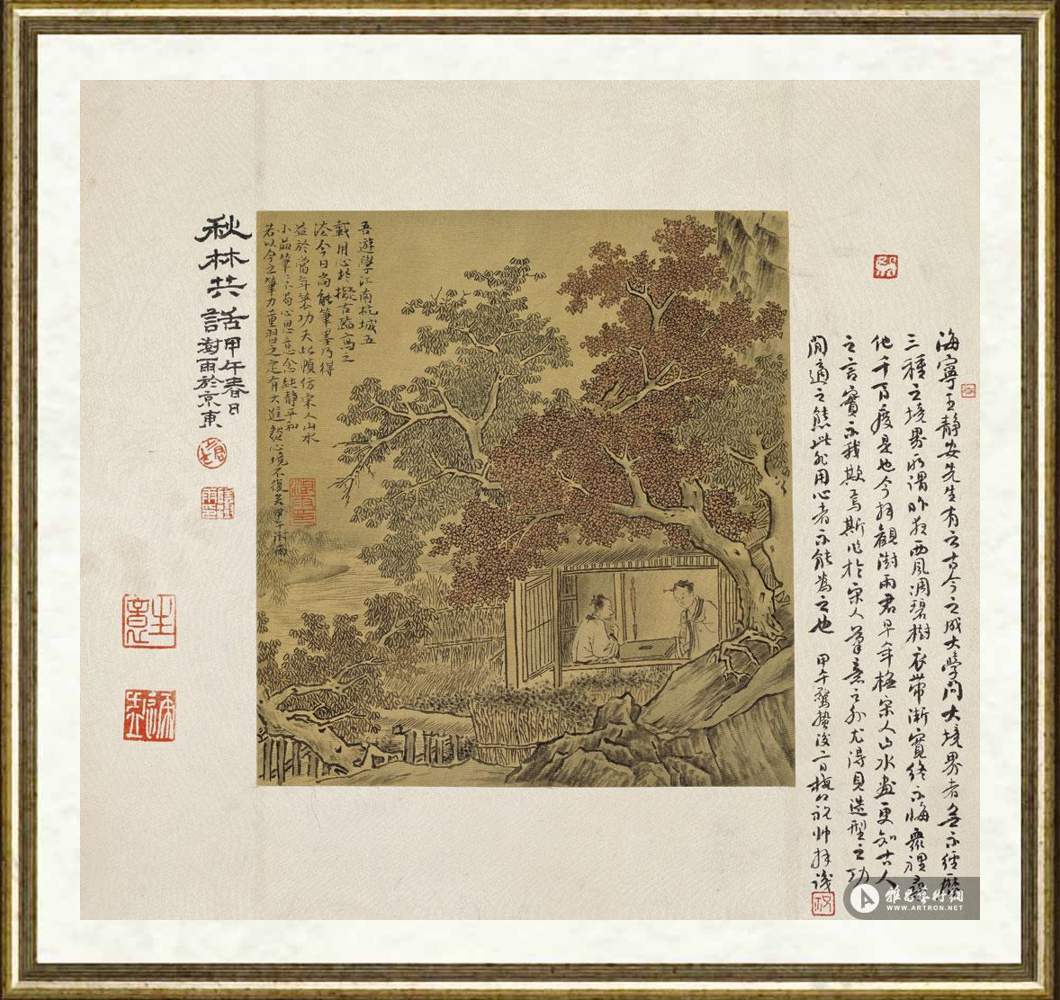 海寧王靜安先生有云古今之成大學問大境界者無不經歷
三種之境界所謂昨夜西風凋碧樹衣帶漸寬終不悔衆裡尋
他千百度是也今拜觀澍雨君早年極宋人山水畫更知古人
之言實不我欺焉斯作於宋人筆意之外尤得見造型之功
閒適之態此非用心者不能為之也 甲午驚蟄後二日 祝帥拜識
吾遊學江南杭城五
載用心於擬古臨寫之
法今日尚能筆墨乃得
益於當年某功夫此幀仿宋人山水
小品筆筆不苟心思意念純靜平和
若以今之筆力重習之定有大進然心境不復矣甲午澍雨
秋林共話
甲午春日
澍雨於京東
雅昌藝術網
WWW.ARTRON.NET